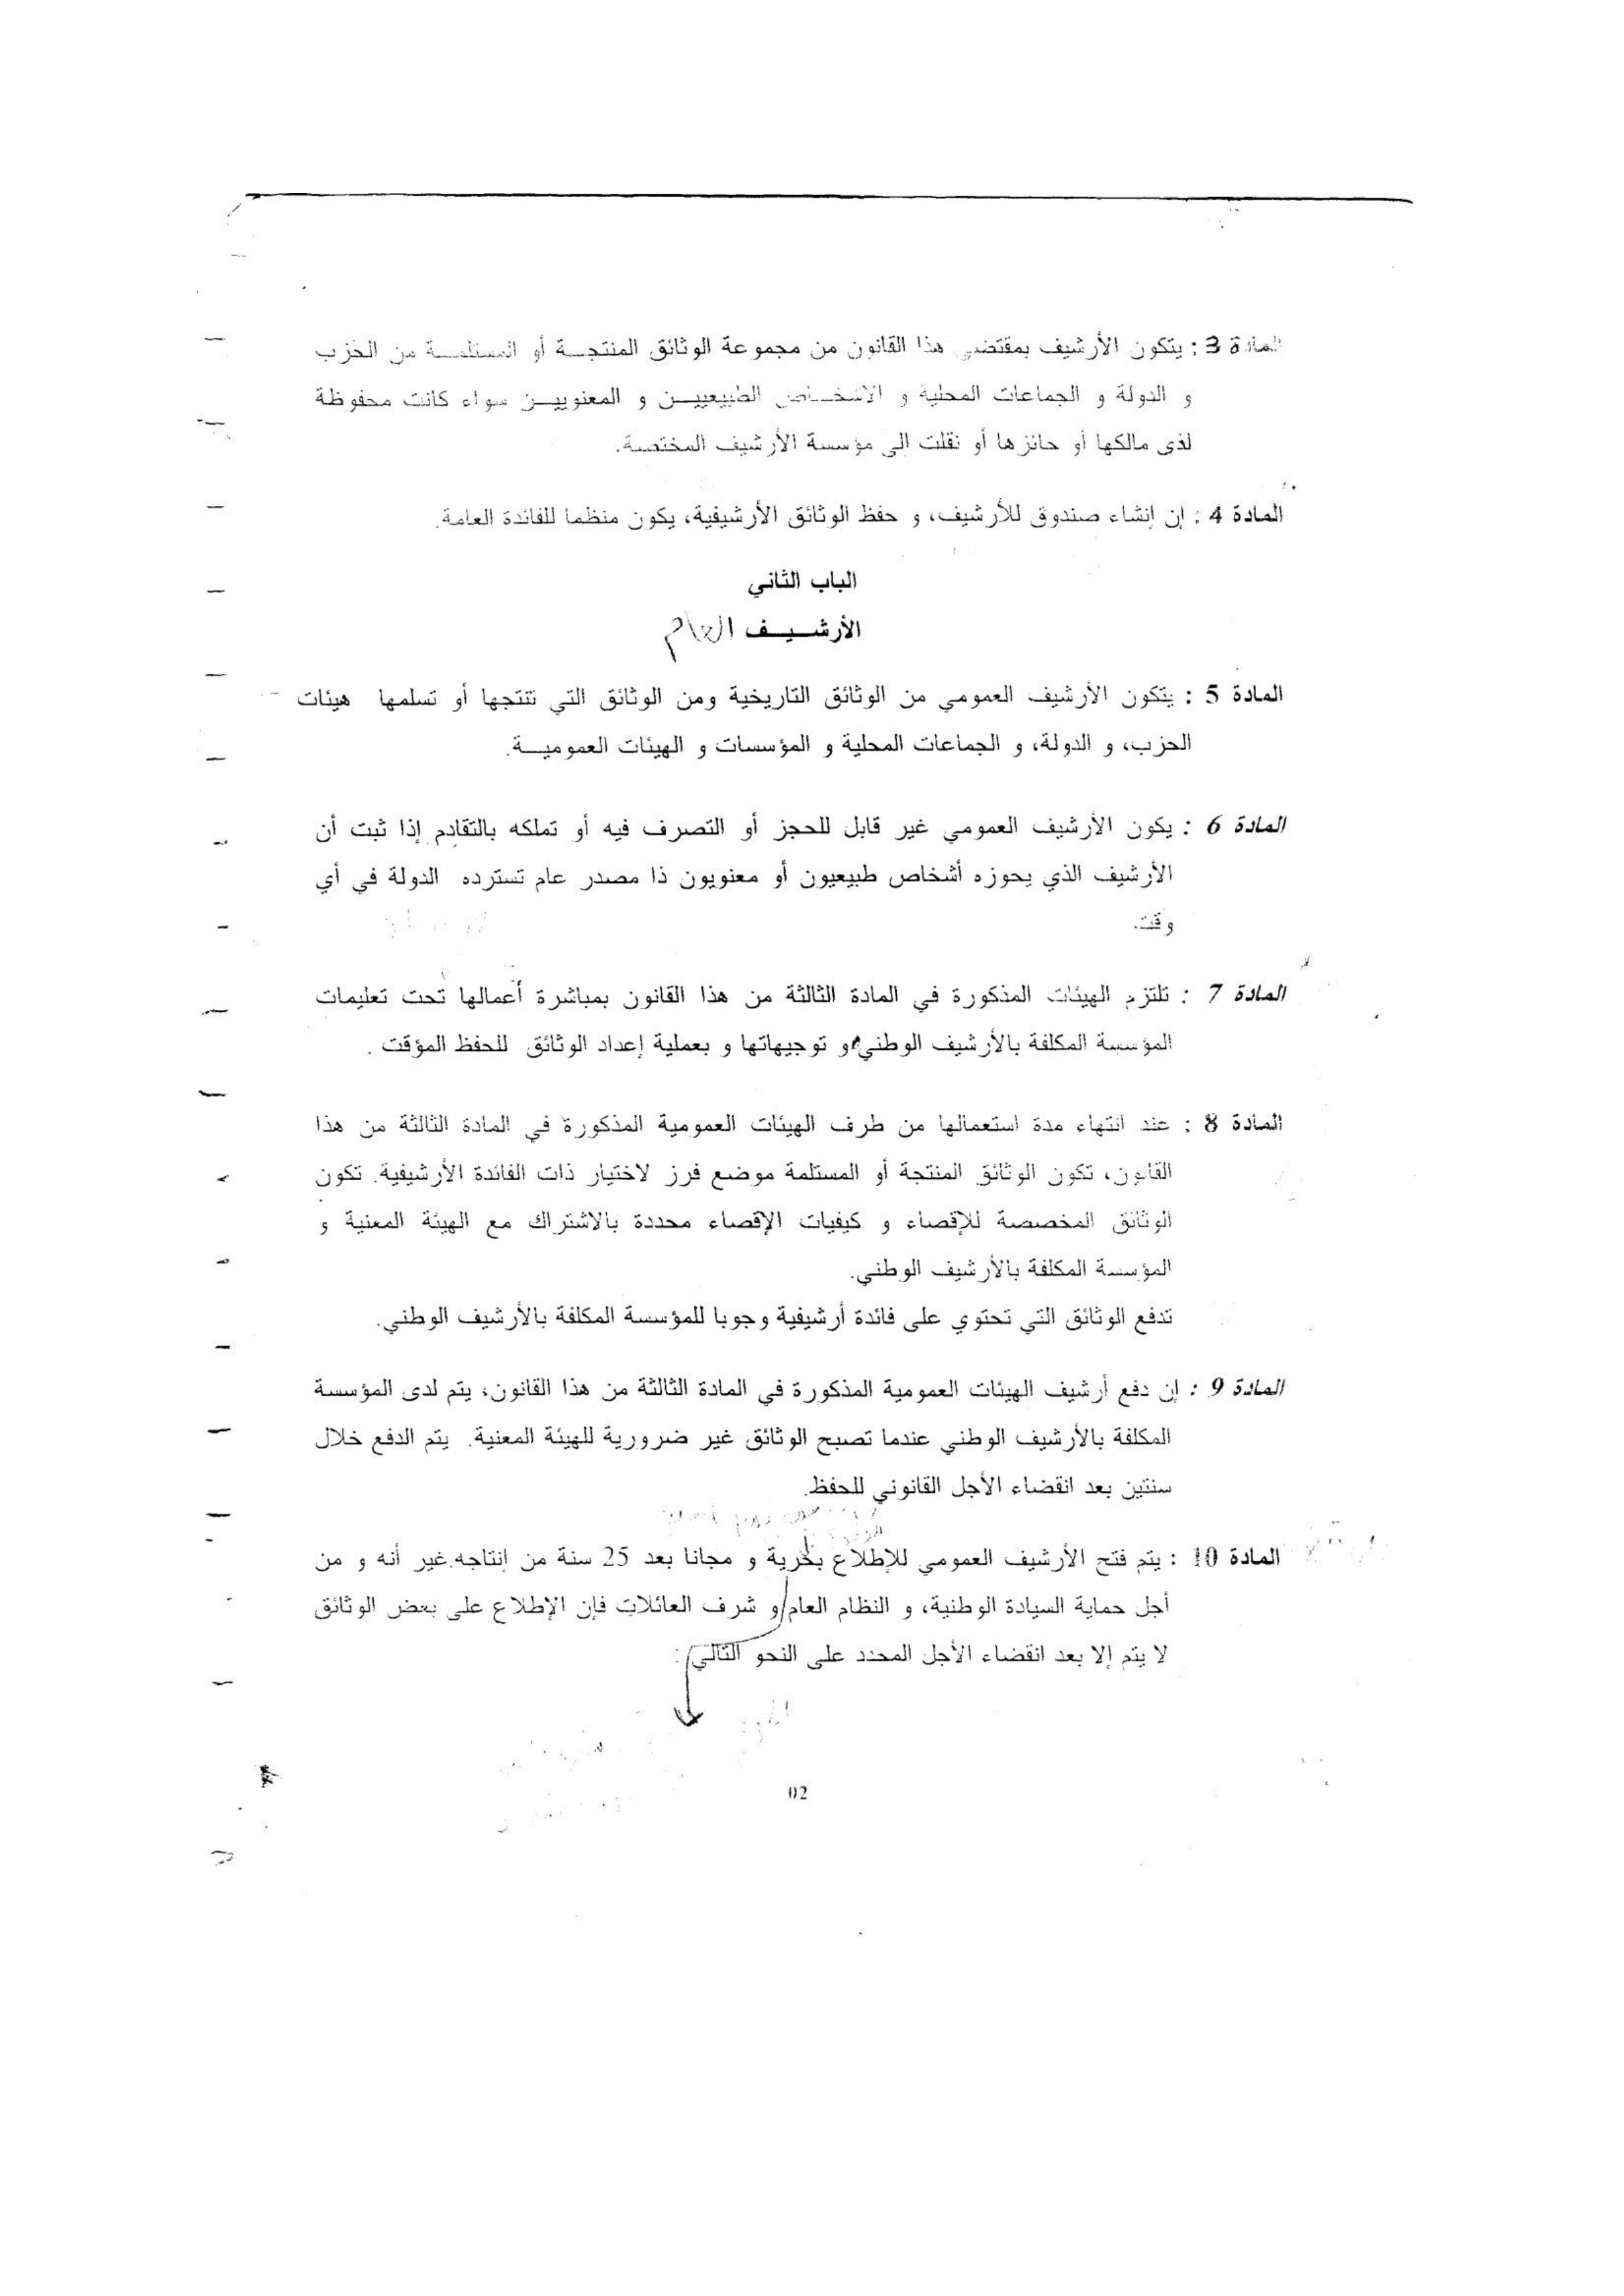 المادة 3 : يتكون الأرشيف بمقتضى هذا القانون من مجموعة الوثائق المنتجة أو المستلمة من الحزب
و الدولة و الجماعات المحلية و الأشخاص الطبيعيين و المعنويين سواء كانت محفوظة
لذى مالكها أو حائزها أو نقلت إلى مؤسسة الأرشيف المختصة.
المادة 4 : إن إنشاء صندوق للأرشيف، و حفظ الوثائق الأرشيفية، يكون منظما للفائدة العامة.
الباب الثاني
الأرشيف العام
المادة 5 : يتكون الأرشيف العمومي من الوثائق التاريخية ومن الوثائق التي تنتجها أو تسلمها هيئات
الحزب، و الدولة، و الجماعات المحلية و المؤسسات و الهيئات العمومية.
المادة 6 : يكون الأرشيف العمومي غير قابل للحجز أو التصرف فيه أو تملكه بالتقادم إذا ثبت أن
الأرشيف الذي يحوزه أشخاص طبيعيون أو معنويون ذا مصدر عام تسترده الدولة في أي
وقت.
المادة 7 : تلتزم الهيئات المذكورة في المادة الثالثة من هذا القانون بمباشرة أعمالها تحت تعليمات
المؤسسة المكلفة بالأرشيف الوطني و توجيهاتها و بعملية إعداد الوثائق للحفظ المؤقت .
المادة 8 : عند انتهاء مدة استعمالها من طرف الهيئات العمومية المذكورة في المادة الثالثة من هذا
القانون، تكون الوثائق المنتجة أو المستلمة موضع فرز لاختيار ذات الفائدة الأرشيفية. تكون
الوثائق المخصصة للإقصاء و كيفيات الإقصاء محددة بالاشتراك مع الهيئة المعنية و
المؤسسة المكلفة بالأرشيف الوطني.
تدفع الوثائق التي تحتوي على فائدة أرشيفية وجوبا للمؤسسة المكلفة بالأرشيف الوطني.
المادة 9 : إن دفع أرشيف الهيئات العمومية المذكورة في المادة الثالثة من هذا القانون، يتم لدى المؤسسة
المكلفة بالأرشيف الوطني عندما تصبح الوثائق غير ضرورية للهيئة المعنية. يتم الدفع خلال
سنتين بعد انقضاء الأجل القانوني للحفظ.
المادة 10 : يتم فتح الأرشيف العمومي للإطلاع بحرية و مجانا بعد 25 سنة من إنتاجه.غير أنه و من
أجل حماية السيادة الوطنية، و النظام العام و شرف العائلات فإن الإطلاع على بعض الوثائق
لا يتم إلا بعد انقضاء الأجل المحدد على النحو التالي :
02